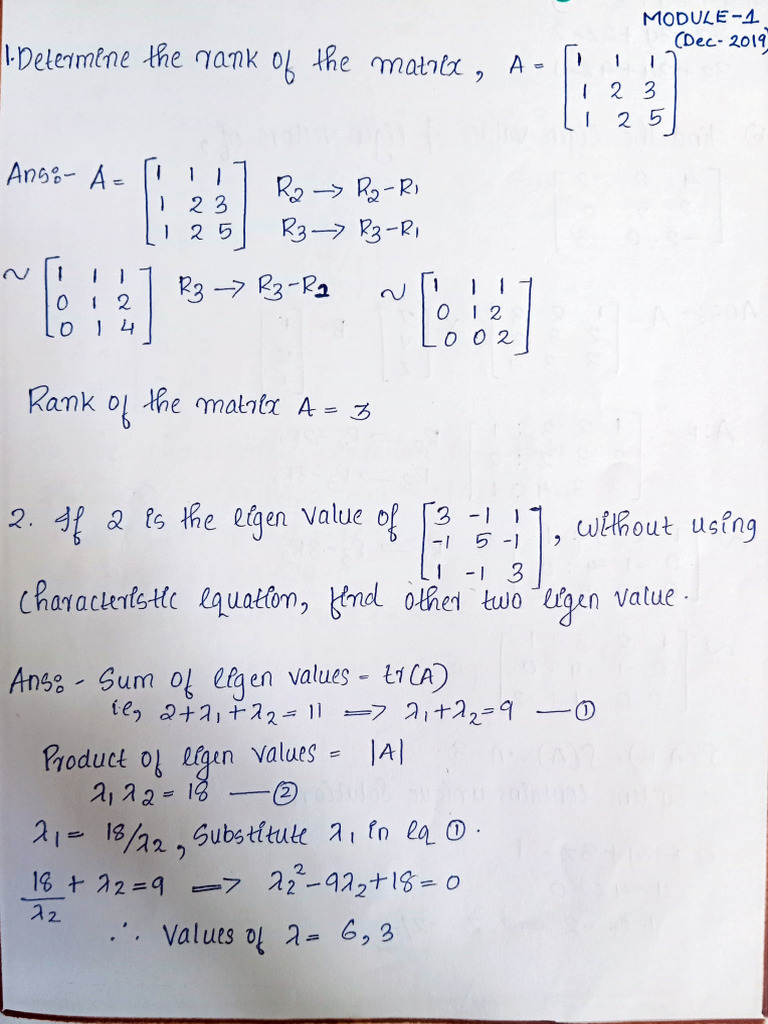 MODULE-1
(Dec-2019)
1. Determine the rank of the matrix, A = [1 1 1
1 2 3
1 2 5]
Ans:- A = [1 1 1
1 2 3
1 2 5] R2 → R2-R1
R3 → R3-R1
~ [1 1 1
0 1 2
0 1 4] R3 → R3-R2 ~ [1 1 1
0 1 2
0 0 2]
Rank of the matrix A = 3
2. If 2 is the eigen value of [3 -1 1
-1 5 -1
1 -1 3], without using
characteristic equation, find other two eigen value.
Ans:- Sum of eigen values = tr(A)
ie, 2+λ1+λ2 = 11 ⟹ λ1+λ2=9 — ①
Product of eigen values = |A|
λ1 λ2 = 18 — ②
λ1 = 18/λ2, Substitute λ1 in eq ①.
18/λ2 + λ2 = 9 ⟹ λ2²-9λ2+18=0
∴ Values of λ = 6, 3